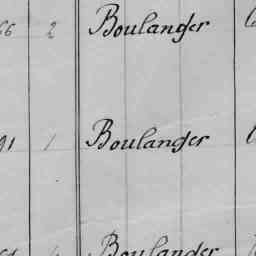 66 2 Boulanger
91 1 Boulanger
Boulanger